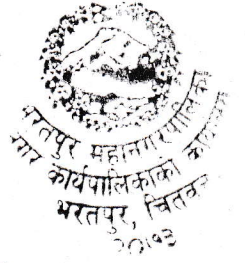 भरतपुर महानगरपालिका
नगर कार्यपालिकाको कार्यालय
भरतपुर, चितवन
२०७३